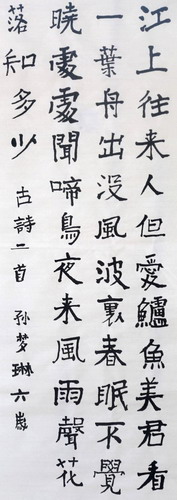 江上往来人但愛鱸魚美君看
一葉舟出没風波裏春眠不覺
曉處處聞啼鳥夜来風雨聲花
落知多少
古詩二首 孙梦琳六歲